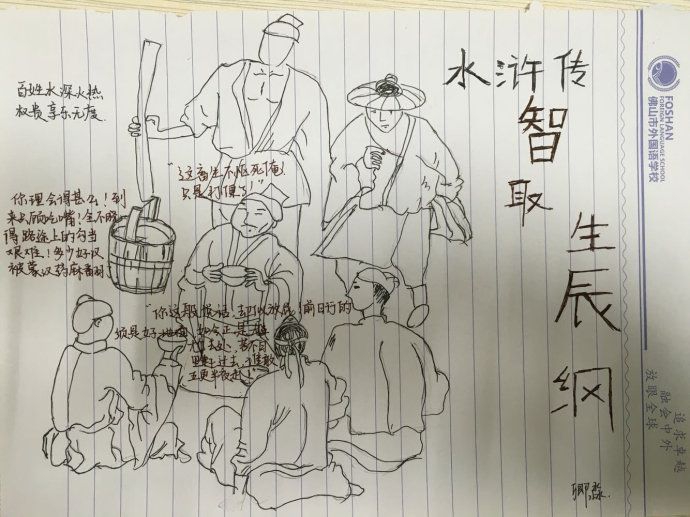 水浒传
智
取
生
辰
纲
百姓水深火热
权贵享乐无度
"这畜生不怄死俺
只是打便了!"
你理会得甚么!到
来只顾吃嘴!全不晓
得路途上的勾当
艰难!多少好汉
被蒙汗药麻翻
"你这般说话,却似放屁!前日行的
须是好
如今正是
去处,若不日
里赶过去,谁敢
五更半夜走!"
FOSHAN
FOREIGN LANGUAGE SCHOOL
佛山市外国语学校
追求卓越
融会中外
放眼全球